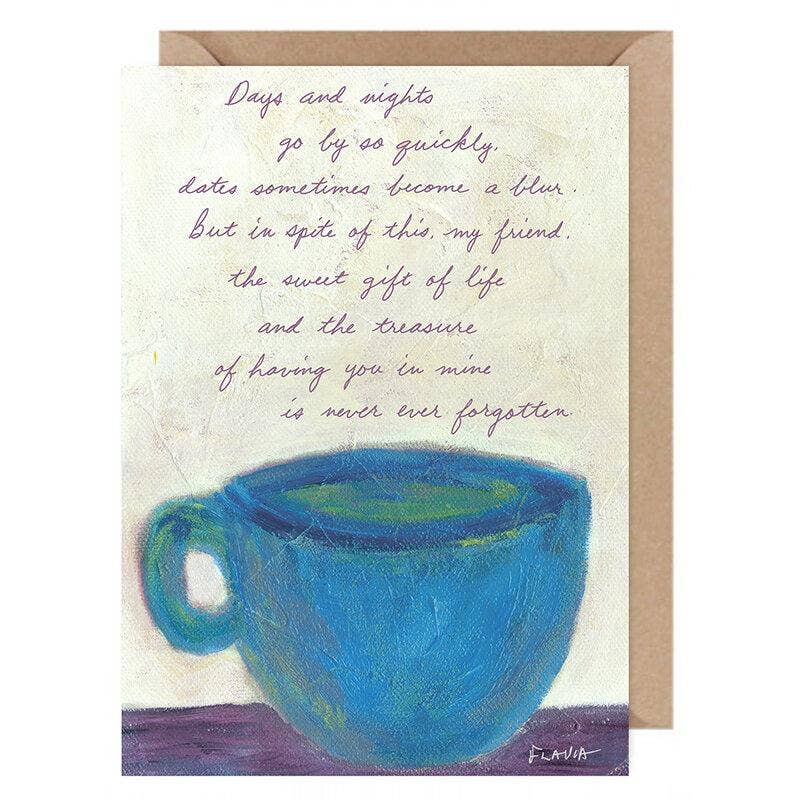 Days and nights
go by so quickly,
dates sometimes become a blur.
But in spite of this, my friend,
the sweet gift of life
and the treasure
of having you in mine
is never ever forgotten.
FLAVIA